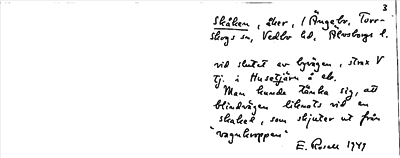 3
Skåken, åker, i Ånge by, Torr-
skogs sn, Vedbo hd, Älvsborgs l.
vid slutet av byvägen, strax V
tj. i Husetjärn å ek.
Man kunde tänka sig, att
blindvägen liknats vid en
skakel, som skjuter ut från
"vagnkroppen"
E. Rosell 1949